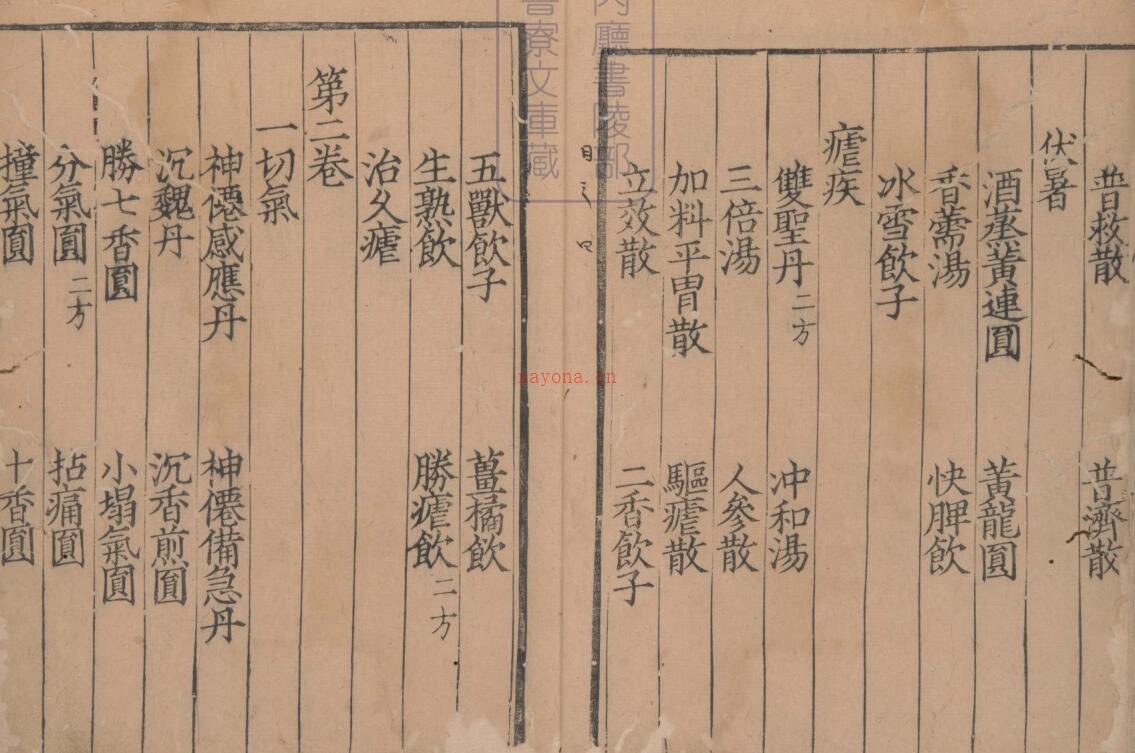 普救散 普濟散
伏暑
酒蒸黃連圓 黃龍圓
香薷湯 快脾飲
冰雪飲子
瘧疾
雙聖丹二方 冲和湯
三倍湯 人參散
加料平胃散 驅瘧散
立效散 二香飲子
五獸飲子 薑橘飲
生熟飲 勝瘧飲二方
治久瘧
第二卷
一切氣
神僊感應丹 神僊備急丹
沉魏丹 沉香煎圓
勝七香圓 小塌氣圓
分氣圓二方 拈痛圓
撞氣圓 十香圓
内廳書陵部
書寮文庫藏
nayona.cn